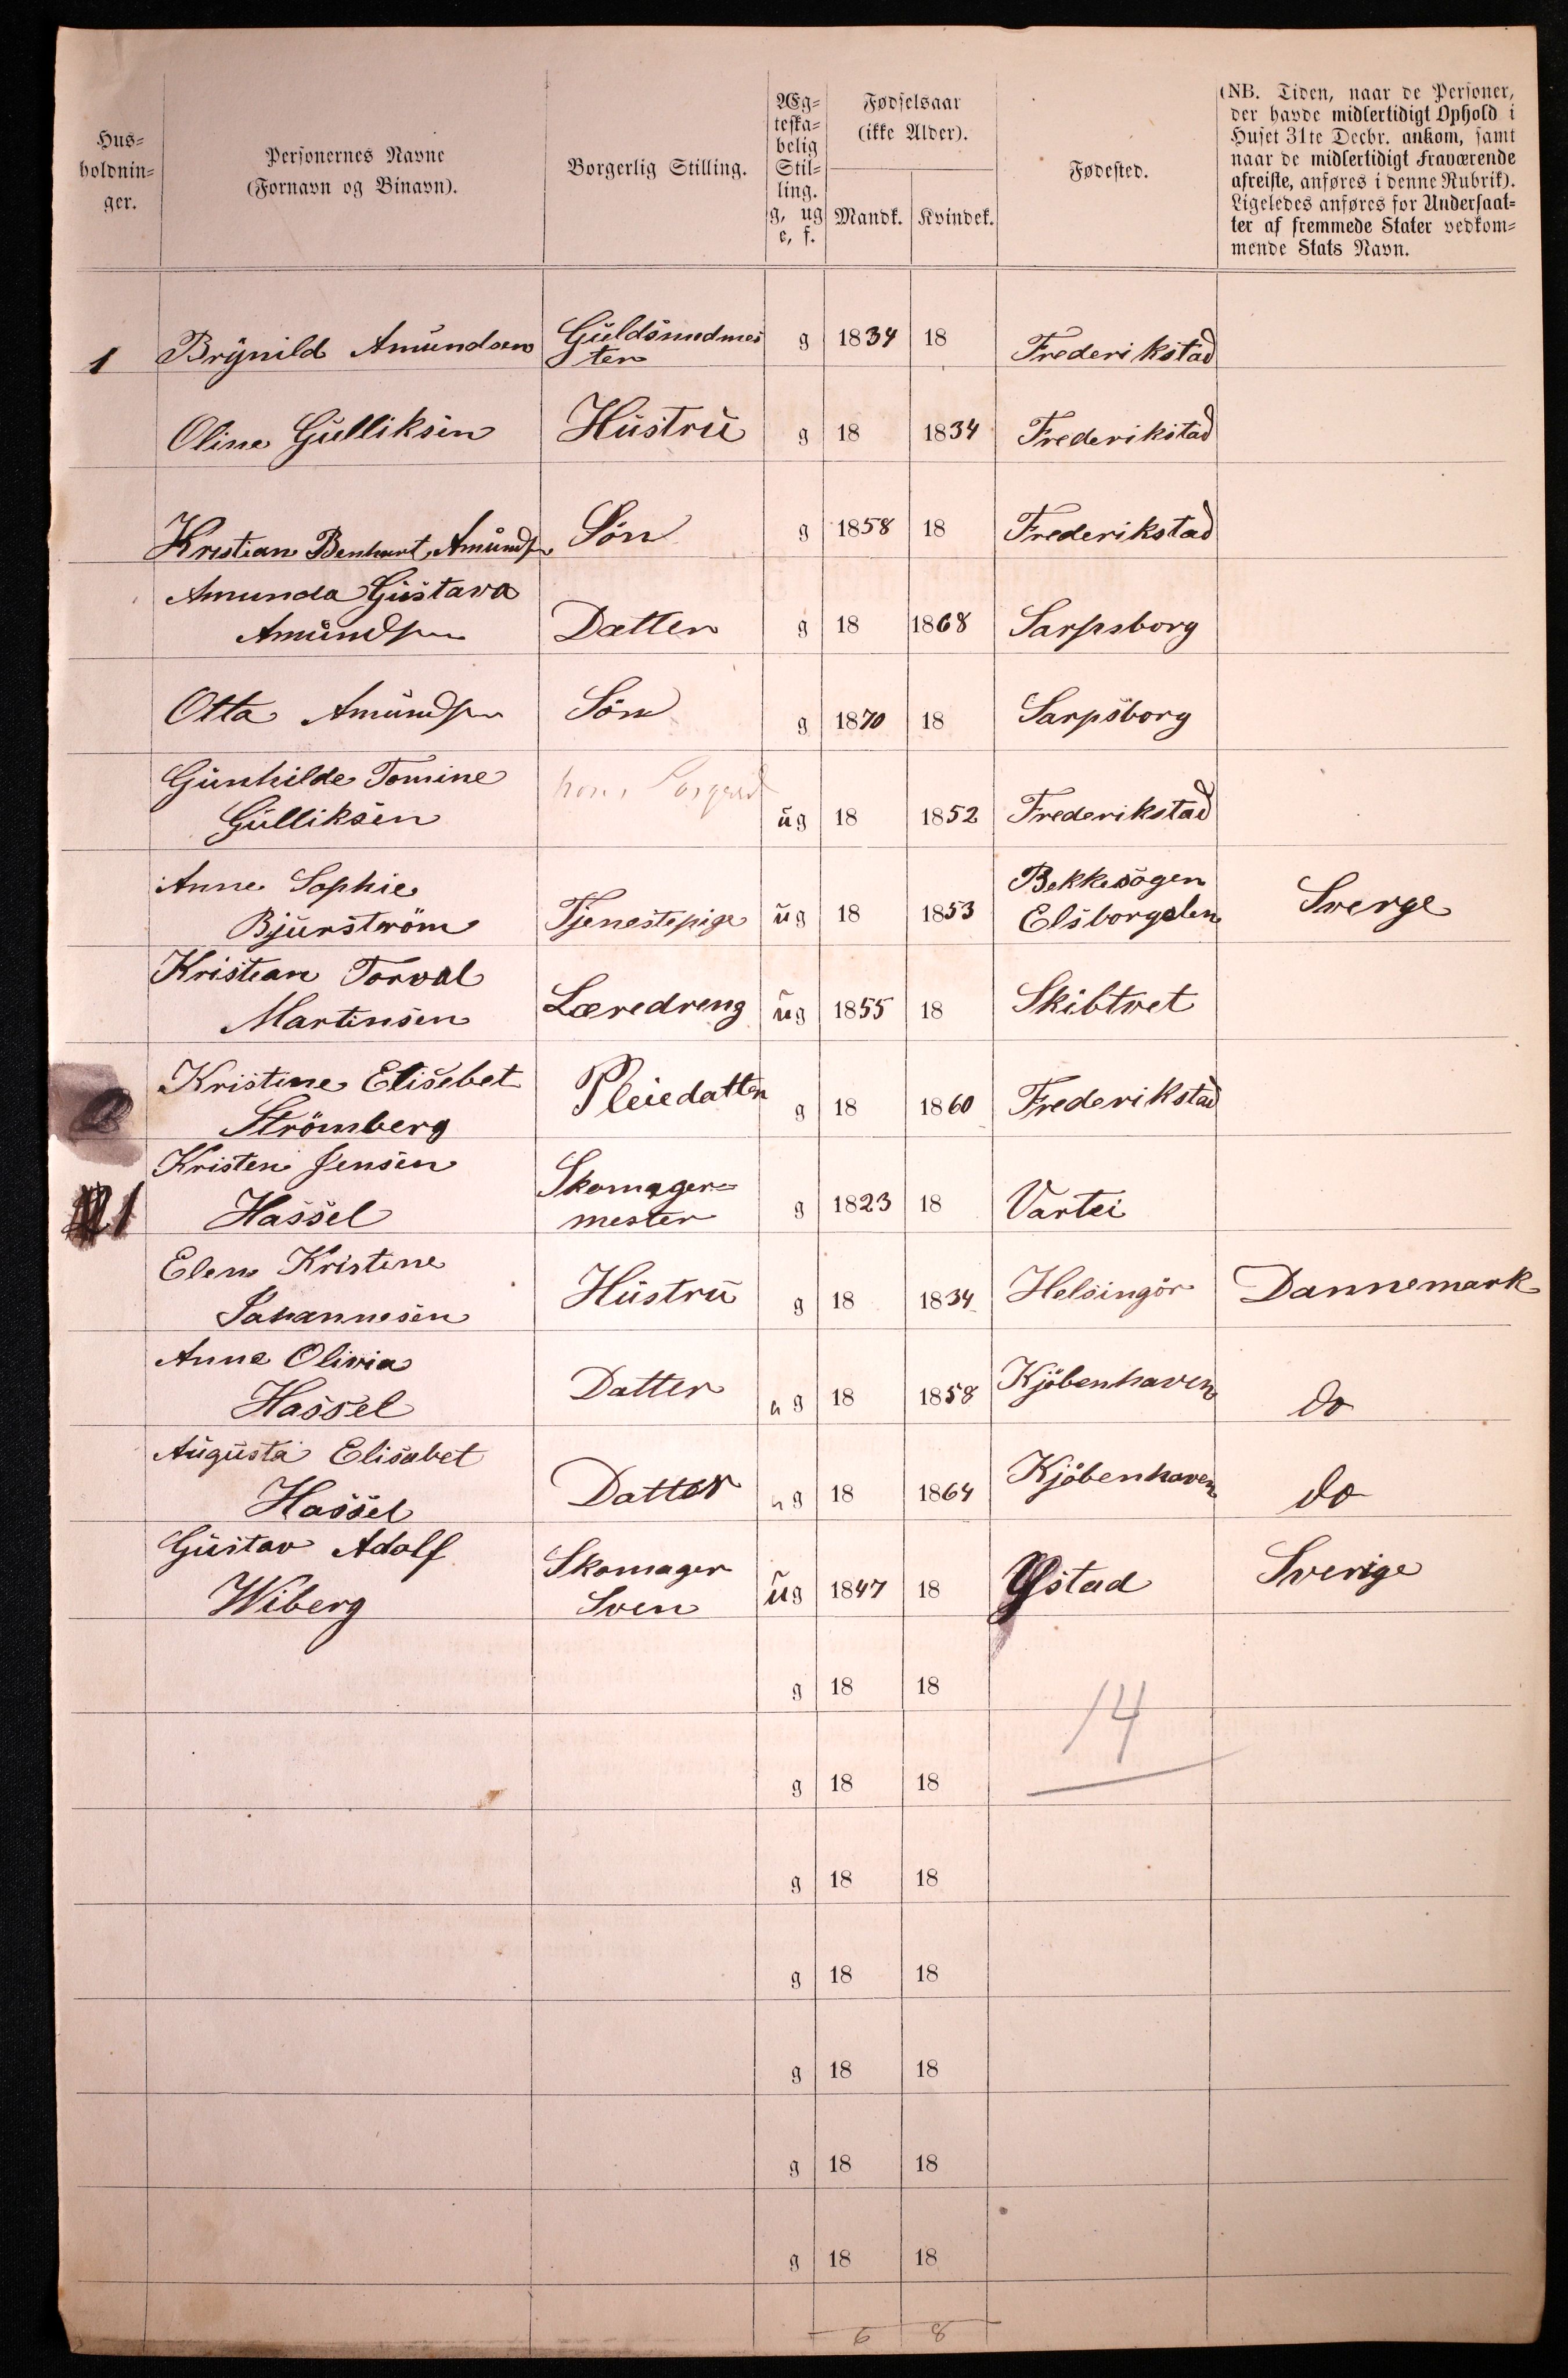 Hus-
holdnin-
ger.
Personernes Navne
(Fornavn og Binavn).
Borgerlig Stilling.
Æg-
teska-
belig
Stil-
ling.
g, ug
e, f.
Fødselsaar
(ikke Alder).
Mandk. Kvindek.
Fødested.
(NB. Tiden, naar de Personer,
der havde midlertidigt Ophold i
Huset 31te Decbr. ankom, samt
naar de midlertidigt Fraværende
afreiste, anføres i denne Rubrik).
Ligeledes anføres for Undersaat-
ter af fremmede Stater vedkom-
mende Stats Navn.
1 Brynild Amundsen Guldsmedmes
ter g 1834 18 Frederikstad
Oline Gulliksen Hustru g 18 1834 Frederikstad
Kristian Benhart Amundsen Søn g 1858 18 Frederikstad
Amunda Gustava
Amundsen Datter g 18 1868 Sarpsborg
Otta Amundsen Søn g 1870 18 Sarpsborg
Gunhilde Tomine
Gulliksen ug 18 1852 Frederikstad
Anne Sophie Bekkesogen
Bjurström Tjenestepige ug 18 1853 Elsborgslen Sverge
Kristian Torval
Martinsen Læredreng ug 1855 18 Skibtvet
Kristine Elisebet
Strömberg Pleiedatter g 18 1860 Frederikstad
Kristen Jensen Skomager=
1 Hassel mester g 1823 18 Vartei
Elen Kristine
Johannesen Hustru g 18 1834 Helsingör Dannemark
Anne Olivia
Hassel Datter ug 18 1858 Kjöbenhaven do
Augusta Elisabet
Hassel Datter ug 18 1864 Kjöbenhaven do
Gustav Adolf Skomager
Wiberg Sven ug 1847 18 Ystad Sverige
g 18 18
14
g 18 18
g 18 18
g 18 18
g 18 18
g 18 18
g 18 18
6 8